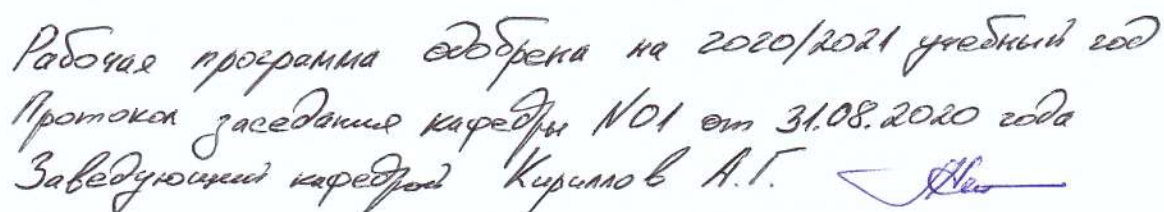 Рабочая программа одобрена на 2020/2021 учебный год
Протокол заседания кафедры №1 от 31.08.2020 года
Заведующий кафедрой Кириллов А.Г.